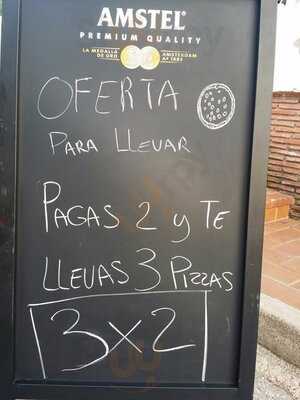 AMSTEL
PREMIUM QUALITY
LA MEDALLA DE ORO
AMSTERDAM
OFERTA
PARA LLEVAR
PAGAS 2 y TE
LLEVAS 3 PIZZAS
3x2